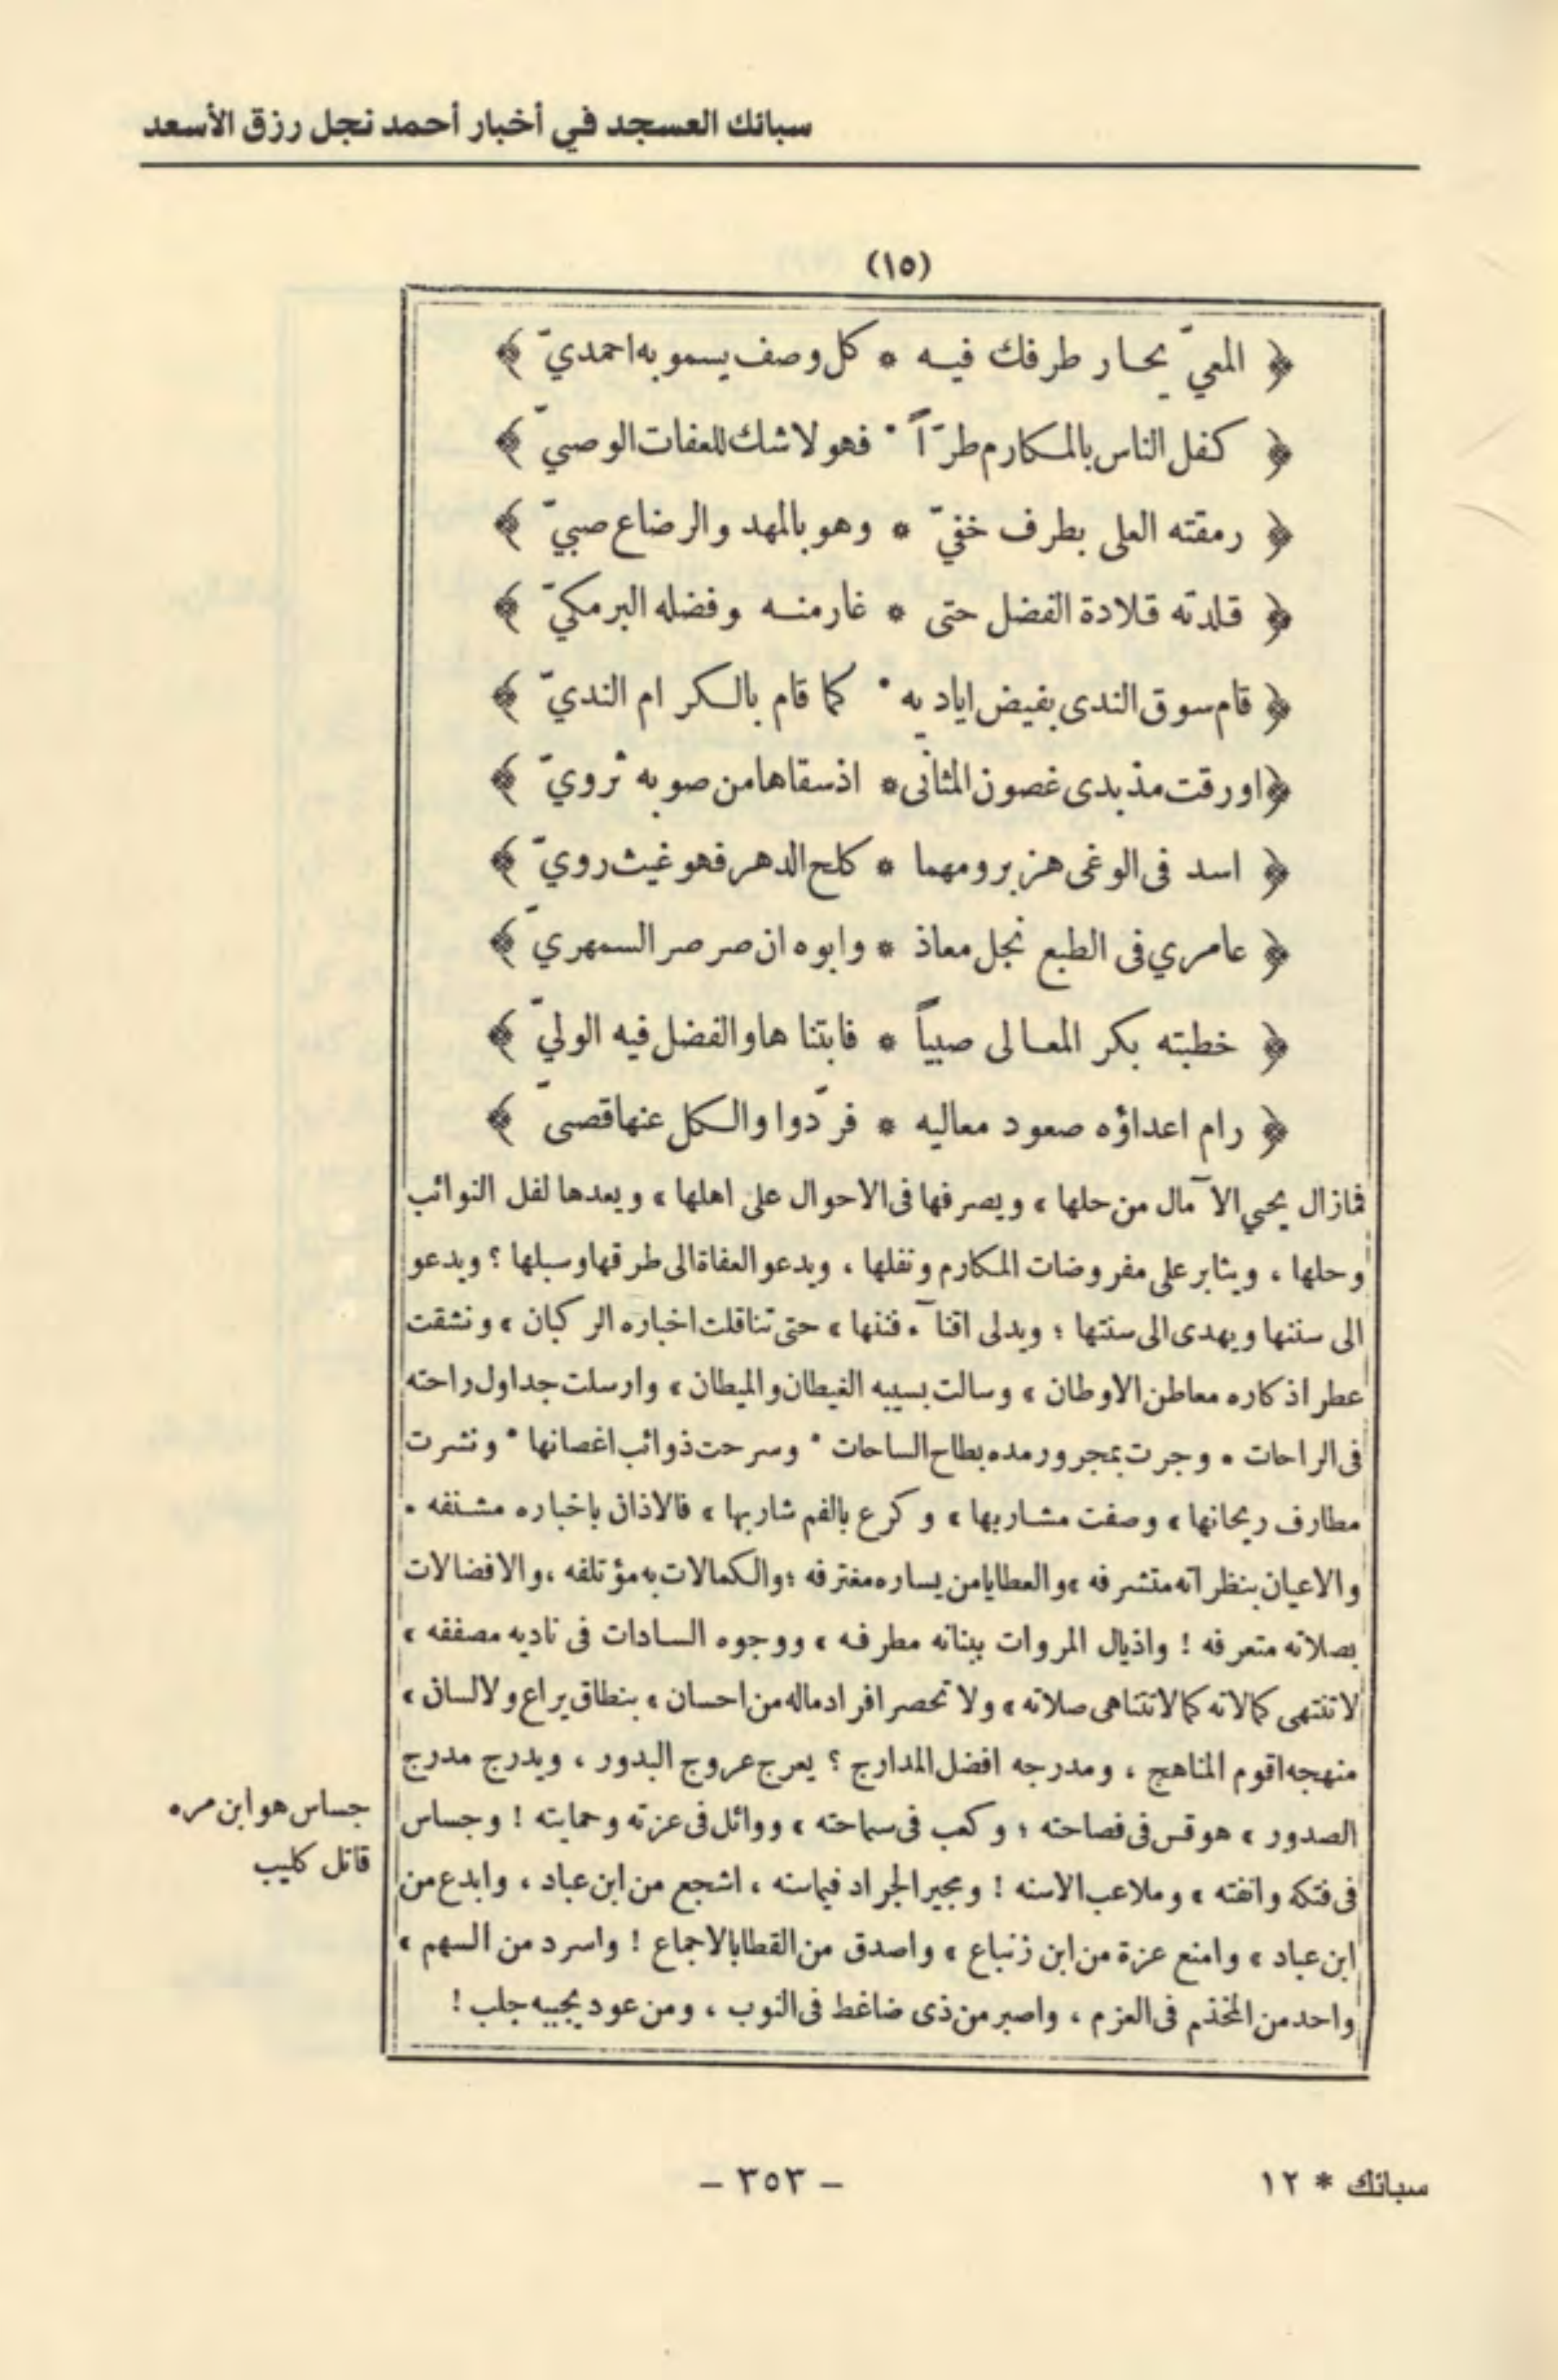 سبائك العسجد في أخبار أحمد نجل رزق الأسعد
(١٥)
﴿ المعيّ يحار طرفك فيه * كل وصف يسمو به احمديّ ﴾
﴿ كفل الناس بالمكارم طرّاً * فهو لا شك للعفات الوصيّ ﴾
﴿ رمقته العلى بطرف خفيّ * وهو بالمهد والرضاع صبيّ ﴾
﴿ قلدته قلادة الفضل حتى * غار منه وفضله البرمكيّ ﴾
﴿ قام سوق الندى بفيض اياديه * كما قام بالكرام النديّ ﴾
﴿ اورقت مذ بدى غصون المثانى * اذ سقاها من صوبه ثرويّ ﴾
﴿ اسد فى الوغى هزبر ومهما * كلح الدهر فهو غيث رويّ ﴾
﴿ عامري فى الطبع نجل معاذ * وابوه ان صرصر السمهريّ ﴾
﴿ خطبته بكر المعالى صبياً * فابتناها والفضل فيه الوليّ ﴾
﴿ رام اعداؤه صعود معاليه * فردّوا والكل عنها قصىّ ﴾
فمازال يحيي الآمال من حلها ، ويصرفها فى الاحوال على اهلها ، ويعدها لفل النوائب
وحلها ، ويثابر على مفروضات المكارم ونفلها ، ويدعو العفاة الى طرقها وسبلها ؟ ويدعو
الى سننها ويهدى الى سنتها ؛ ويدلى اقنآء فننها ، حتى تناقلت اخباره الركبان ، ونشقت
عطر اذكاره معاطن الاوطان ، وسالت بسيبه الغيطان والميطان ، وارسلت جداول راحته
فى الراحات . وجرت بمجرور مده بطاح الساحات * وسرحت ذوائب اغصانها * ونشرت
مطارف ريحانها ، وصفت مشاربها ، وكرع بالفم شاربها ، فالاذان باخباره مشنفه .
والاعيان بنظراته متشرفه ، والعطايا من يساره مغترفه ؛ والكمالات به مؤتلفه ، والافضالات
بصلاته متعرفه ! واذيال المروات ببنانه مطرفه ، ووجوه السادات فى ناديه مصففه ،
لا تنتهى كمالاته كما لا تتناهى صلاته ، ولا تحصر افراد ماله من احسان ، بنطاق يراع ولا لسان ،
منهجه اقوم المناهج ، ومدرجه افضل المدارج ؟ يعرج عروج البدور ، ويدرج مدرج
الصدور ، هو قس فى فصاحته ؛ وكعب فى سماحته ، ووائل فى عزته وحمايته ! وجساس
فى فتكه وانفته ، وملاعب الاسنه ! ومجير الجراد فيما سنه ، اشجع من ابن عباد ، وابدع من
ابن عباد ، وامنع عزة من ابن زنباع ، واصدق من القطا بالاجماع ! واسرد من السهم ،
واحد من المخذم فى العزم ، واصبر من ذى ضاغط فى النوب ، ومن عود بجبيه جلب !
جساس هو ابن مره
قاتل كليب
سبائك * ١٢
- ٣٥٣ -